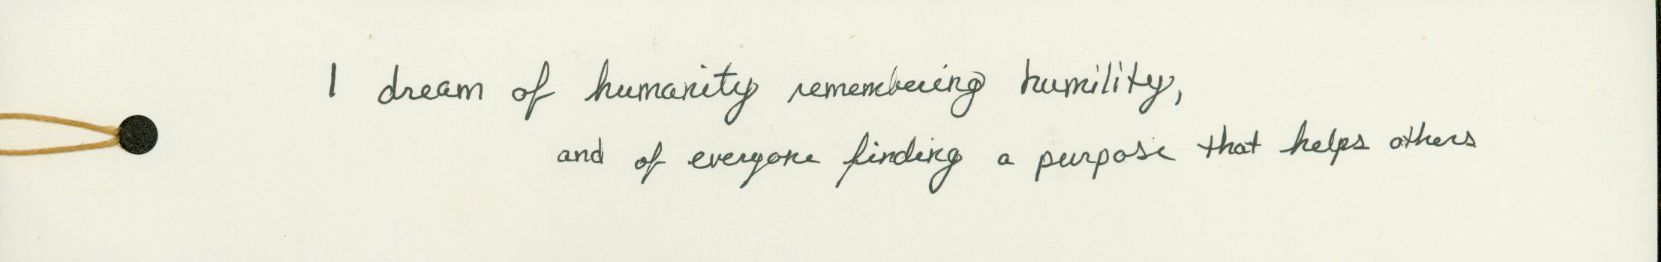 I dream of humanity remembering humility,
and of everyone finding a purpose that helps others